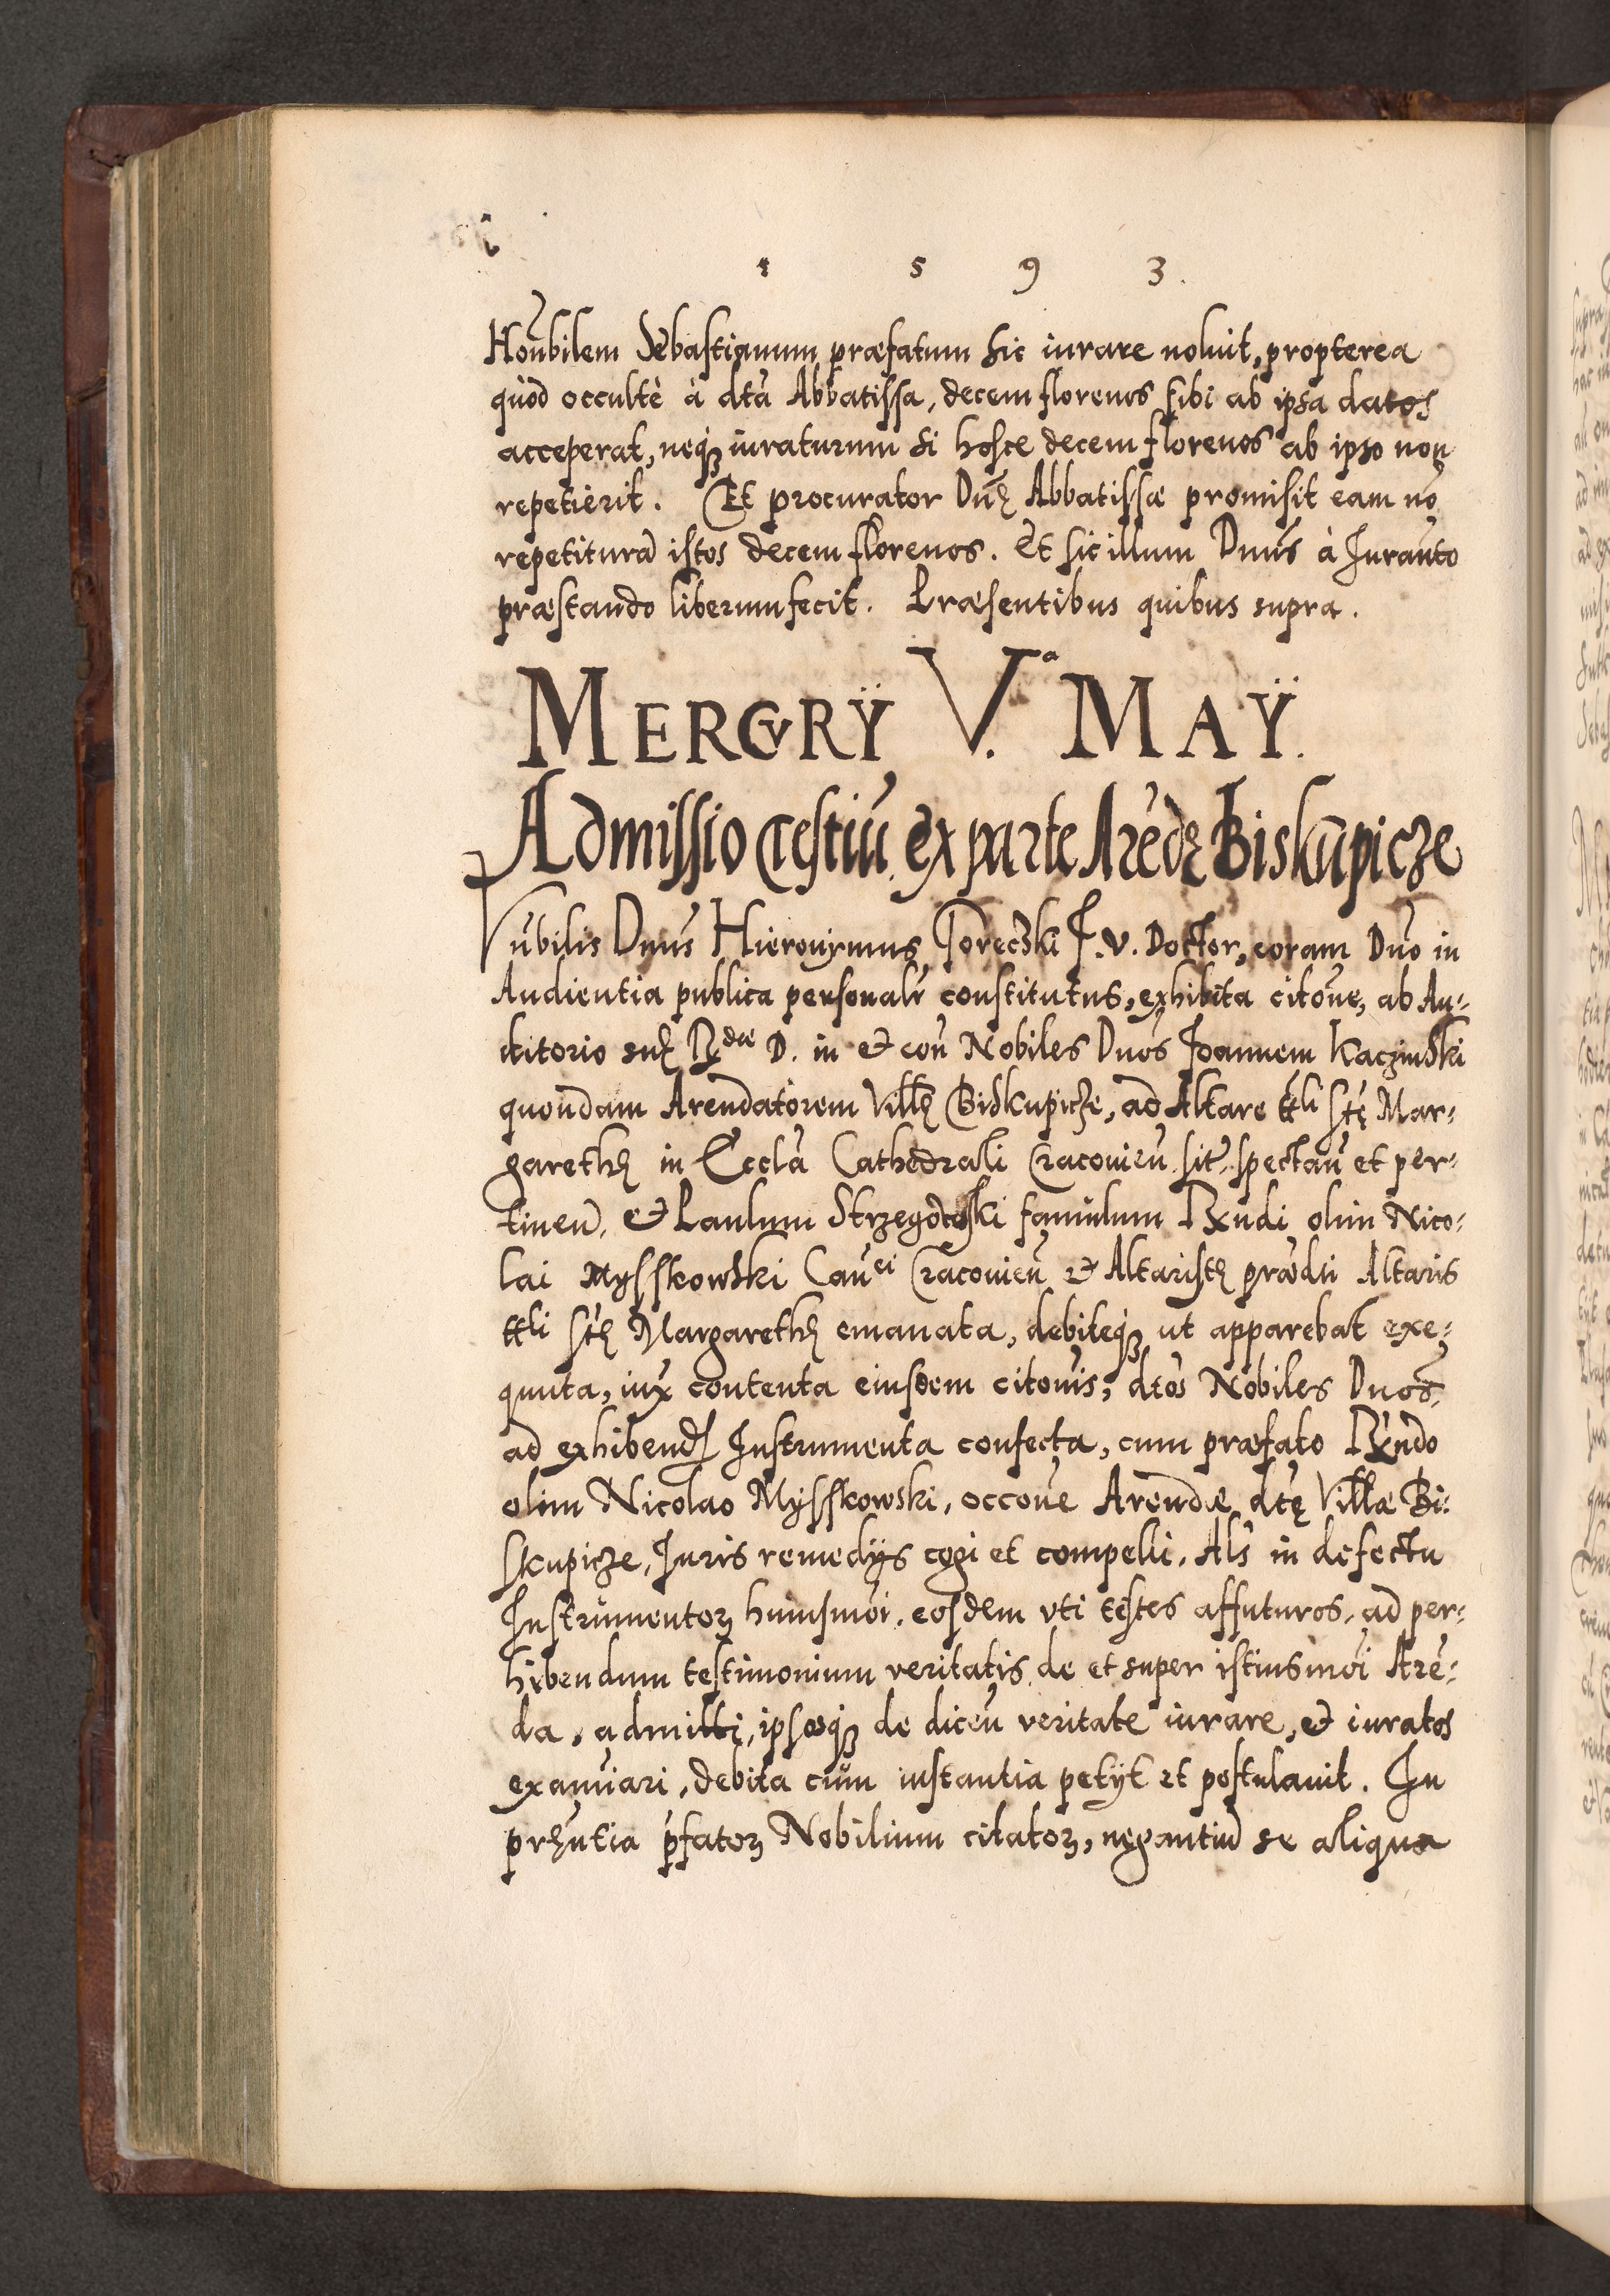 1 5 9 3.
Honbilem Sebastianum præfatum sic iurare noluit, propterea
quòd occultè à dta Abbatissa, decem florenos sibi ab ipsa datos
acceperat, neqȝ iuraturum si hosce decem florenos ab ipso non
repetierit. Et procurator Dnę Abbatissæ promisit eam nō
repetiturā istos decem florenos. Et sic illum Dnus à Iurānto
præstando liberum fecit. Præsentibus quibus supra.
MERCVRŸ V.ª MAŸ.
Admissio testiū ex parte Arēdę Biskupicze
Nūbilis Dnus Hieronymus Poreczki I. V. Doctor, coram Dno in
Audientia publica personalr constitutus, exhibita citōne, ab Au-
ditorio suę Rdæ D. in et con Nobiles Dnos Joannem Kaczinski
quondam Arendatorem Villę Biskupicze, ad Altare ttli Stę Mar-
garethę in Eccla Cathedrali Cracovien sit. spectan et per-
tinen. et Paulum Strzegoczki famulum Rxndi olim Nico-
lai Mysskowski Canci Cracovien et Altaristę prædti Altaris
ttli Stę Margarethę emanata, debiteqȝ ut apparebat exe-
quuta, iux contenta eiusdem citonis, dtos Nobiles Dnos,
ad exhibend Instrumenta confecta, cum præfato Rxndo
olim Nicolao Mysskowski, occone Arendæ dtę Villæ Bi-
skupicze, Iuris remedijs cogi et compelli, Als in defectu
Instrumentoȝ huiusmoi. eosdem vti testes affuturos, ad per-
hibendum testimonium veritatis de et super istiusmoi Arē-
da, admitti, ipsosqȝ de dicen veritate iurare, et iuratos
examiari, debita cum instantia petijt et postulavit. In
prȩntia pfatoȝ Nobilium citatoȝ, negantiū se aliqua